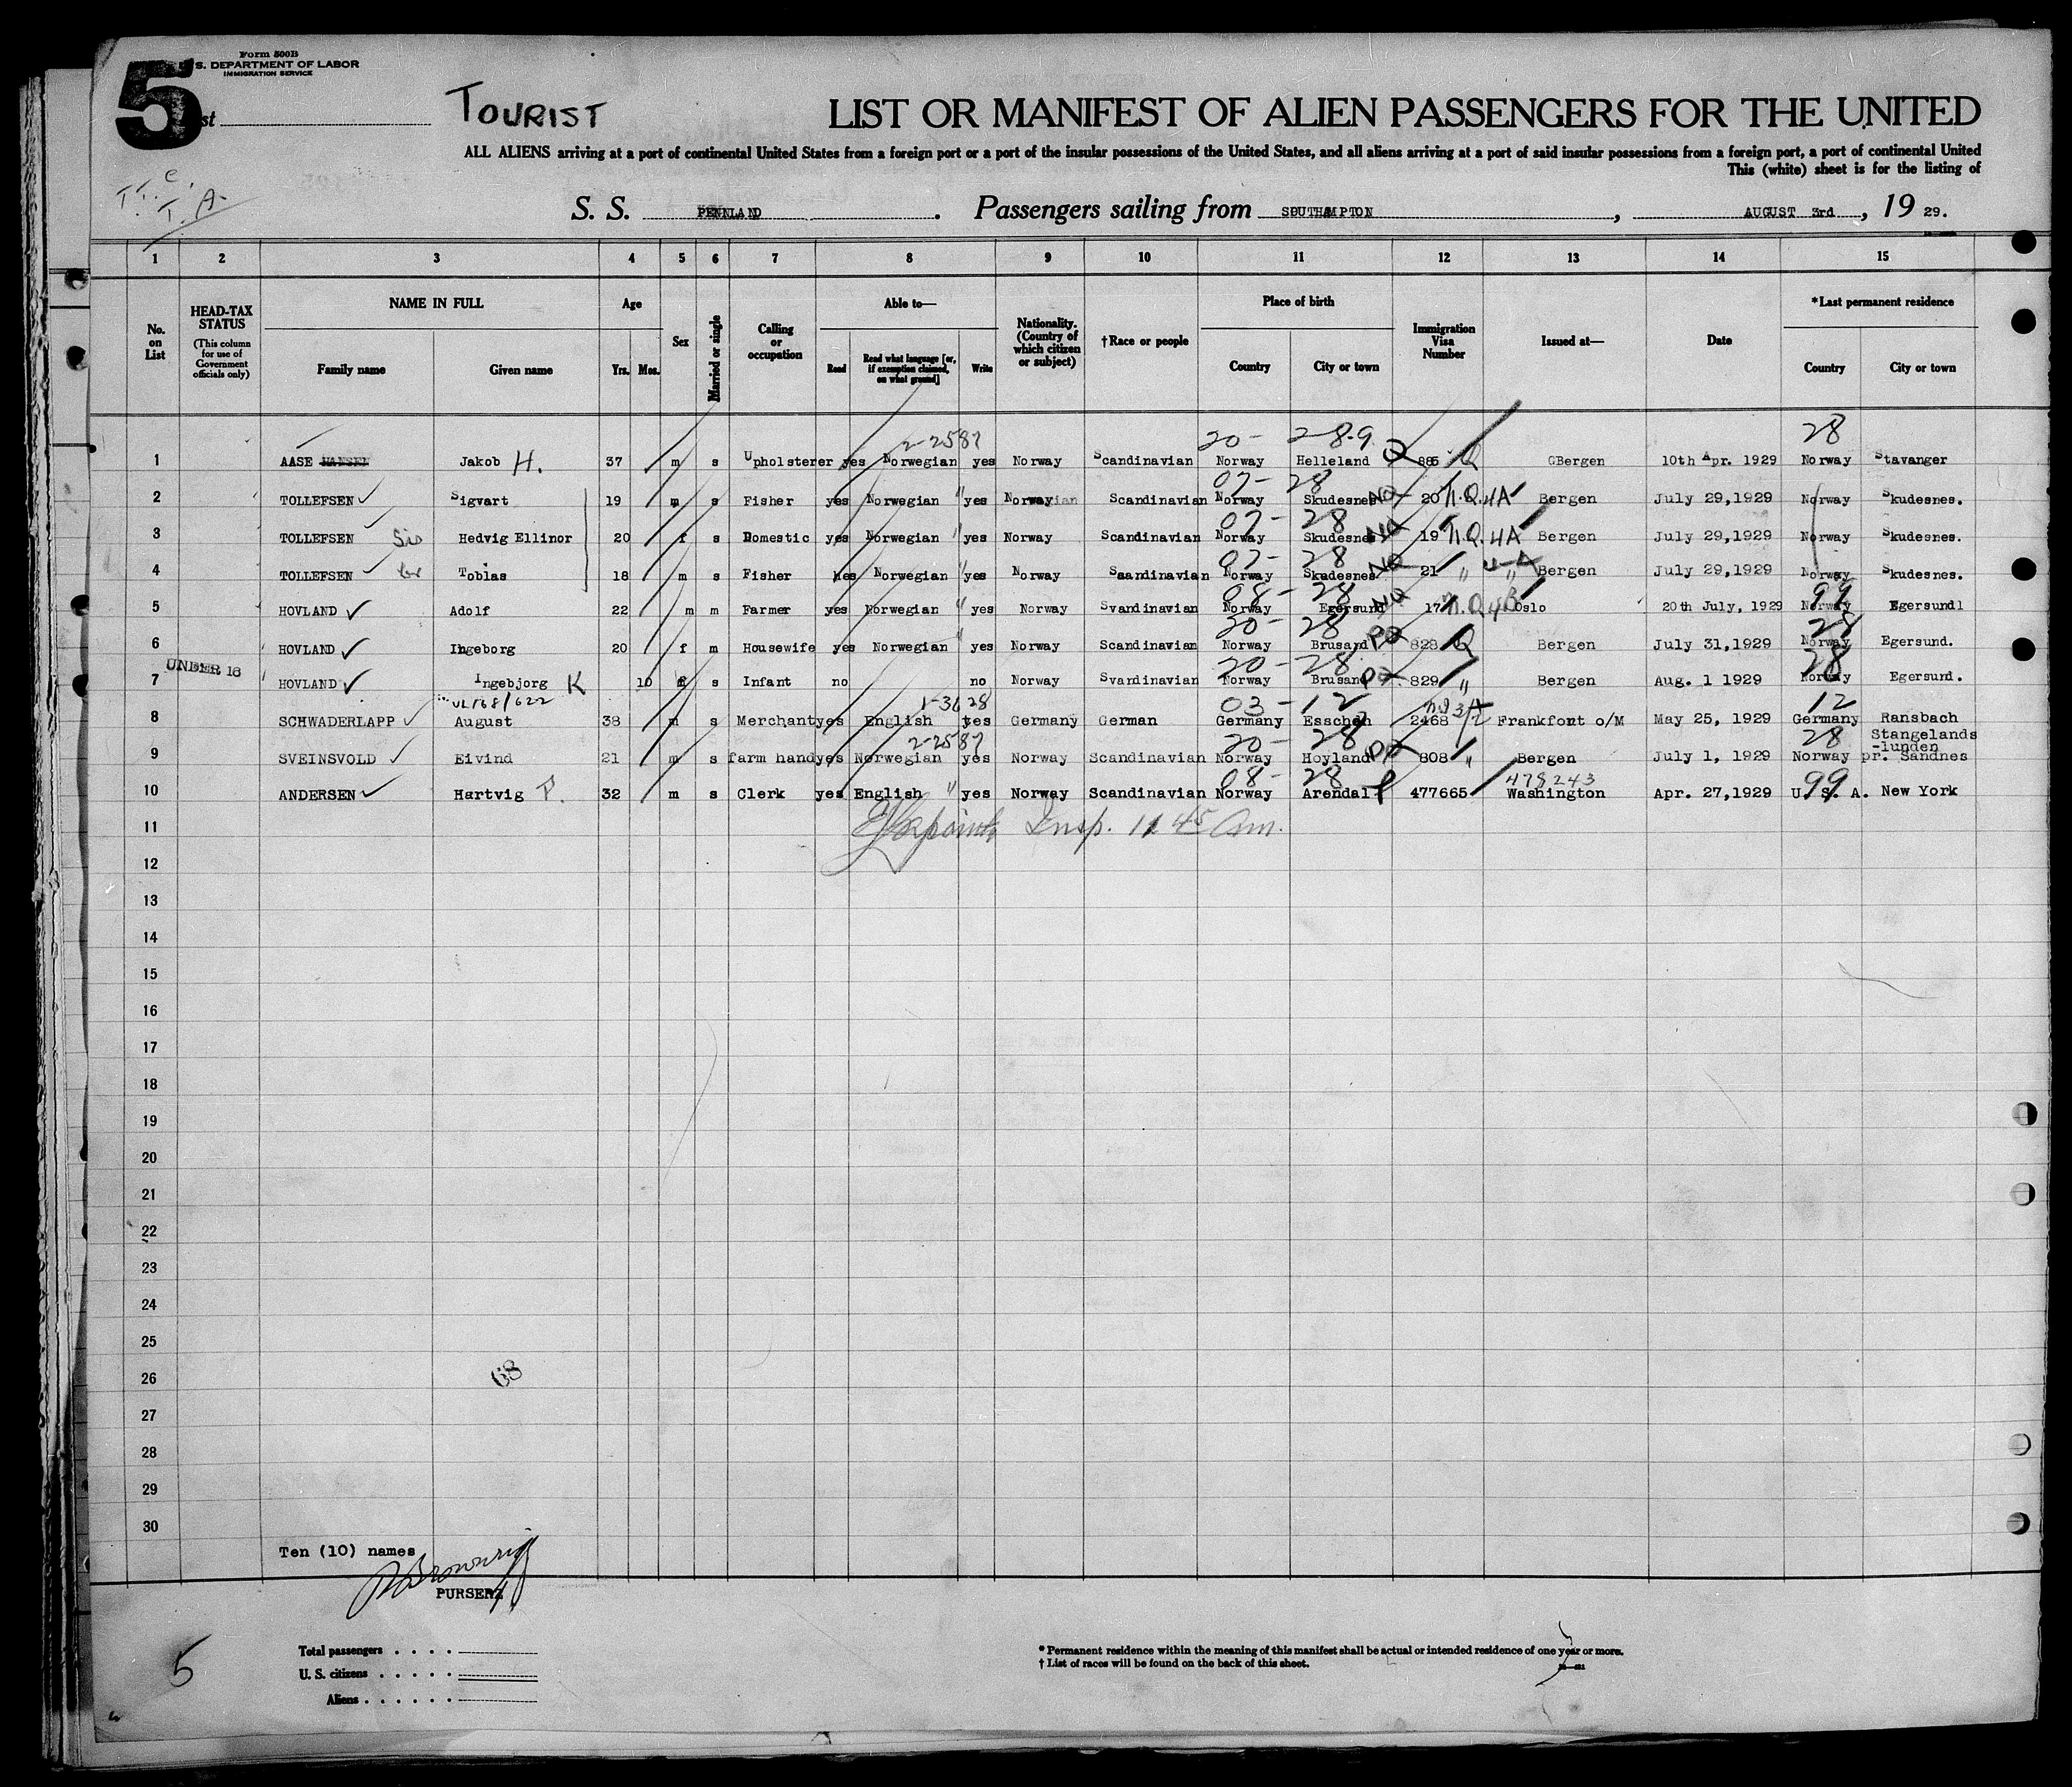 5
Form 500B
S. DEPARTMENT OF LABOR
IMMIGRATION SERVICE
st
TOURIST
LIST OR MANIFEST OF ALIEN PASSENGERS FOR THE UNITED
ALL ALIENS arriving at a port of continental United States from a foreign port or a port of the insular possessions of the United States, and all aliens arriving at a port of said insular possessions from a foreign port, a port of continental United
This (white) sheet is for the listing of
S. S. PENNLAND . Passengers sailing from SOUTHAMPTON , AUGUST 3rd , 19 29.
1 2 3 4 5 6 7 8 9 10 11 12 13 14 15
No. on List
HEAD-TAX STATUS (This column for use of Government officials only)
NAME IN FULL
Family name Given name
Age
Yrs. Mos.
Sex
Married or single
Calling or occupation
Able to—
Read Read what language [or, if exemption claimed, on what ground] Write
Nationality. (Country of which citizen or subject)
†Race or people
Place of birth
Country City or town
Immigration Visa Number
Issued at—
Date
*Last permanent residence
Country City or town
2-2587 20- 2-8-9 28
1 AASE HANSEN Jakob H. 37 m s Upholsterer yes Norwegian yes Norway Scandinavian Norway Helleland Q 885 Q GBergen 10th Apr. 1929 Norway Stavanger
07- 28
2 TOLLEFSEN Sigvart 19 m s Fisher yes Norwegian " yes Norwayian Scandinavian Norway Skudesnes NQ 20 N.Q.4A Bergen July 29,1929 Norway Skudesnes.
07- 28
3 TOLLEFSEN Sis Hedvig Ellinor 20 f s Domestic yes Norwegian " yes Norway Scandinavian Norway Skudesnes NQ 19 N.Q.4A Bergen July 29,1929 Norway Skudesnes.
07- 28
4 TOLLEFSEN br Tobias 18 m s Fisher yes Norwegian " yes Norway Saandinavian Norway Skudesnes NQ 21 " 4-A Bergen July 29,1929 Norway Skudesnes.
08- 28 99
5 HOVLAND Adolf 22 m m Farmer yes Norwegian " yes Norway Svandinavian Norway Egersund NQ 17 N.Q 4B Oslo 20th July, 1929 Norway Egersundl
20- 28 28
6 HOVLAND Ingeborg 20 f m Housewife yes Norwegian " yes Norway Scandinavian Norway Brusand 828 Q Bergen July 31,1929 Norway Egersund.
UNDER 16
20- 28 28
7 HOVLAND Ingebjorg K 10 f s Infant no no Norway Svandinavian Norway Brusand 829 " Bergen Aug. 1 1929 Norway Egersund.
1-3628 03-12 12
8 SCHWADERLAPP August 38 m s Merchant yes English yes Germany German Germany Esschen 2468 Frankfort o/M May 25, 1929 Germany Ransbach
2-2587 20- 28 28 Stangelands
-lunden
9 SVEINSVOLD Eivind 21 m s farm hand yes Norwegian yes Norway Scandinavian Norway Hoyland 808 " Bergen July 1, 1929 Norway pr. Sandnes
08- 28 478243 99
10 ANDERSEN Hartvig P. 32 m s Clerk yes English " yes Norway Scandinavian Norway Arendal 477665 Washington Apr. 27,1929 U. S. A. New York
11 Insp. 11 45 Am.
12
13
14
15
16
17
18
19
20
21
22
23
24
25
26
68
27
28
29
30
Ten (10) names
PURSER
5
Total passengers
U. S. citizens
Aliens
* Permanent residence within the meaning of this manifest shall be actual or intended residence of one year or more.
† List of races will be found on the back of this sheet.